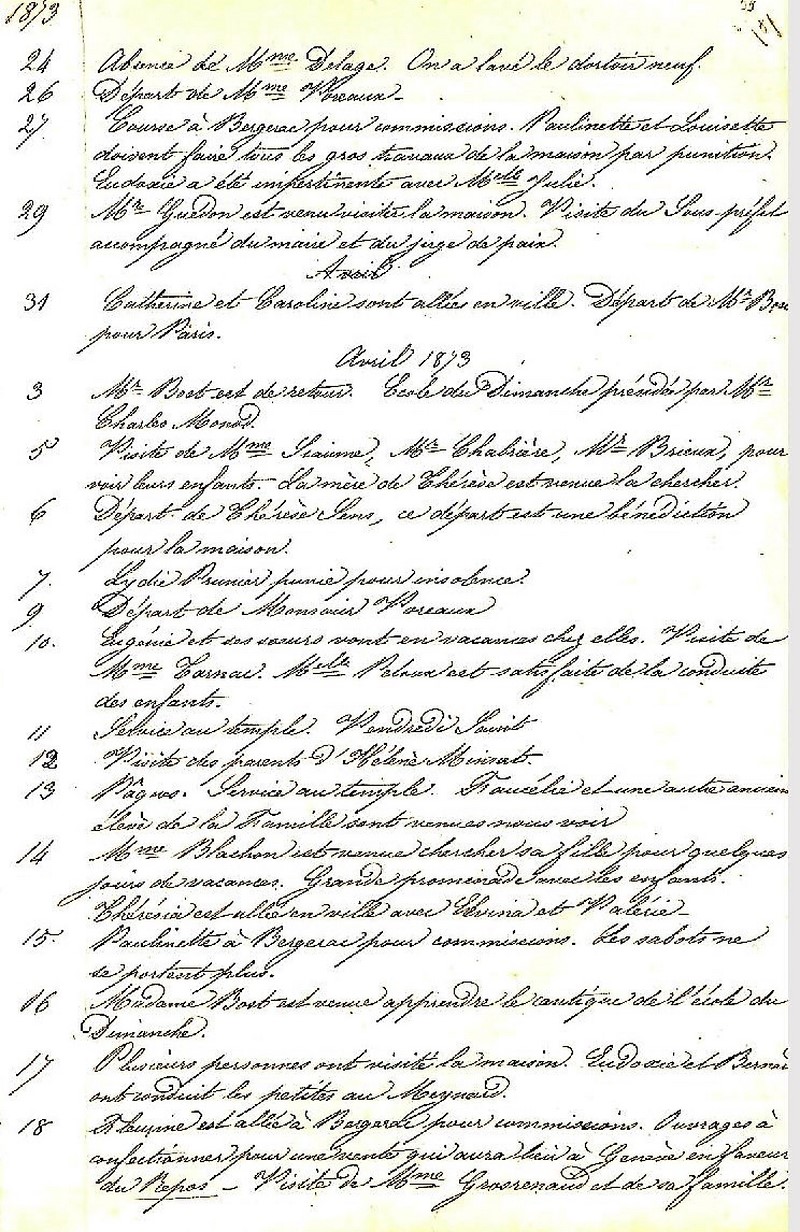 1873
24 Absence de Mme Delage. On a lavé le dortoir neuf.
26 Départ de Mme Voreaux -
27 Course à Bergerac pour commissions. Paulinette et Louisette
doivent faire tous les gros travaux de la maison par punition.
Eudoxie a été impertinente avec Melle Julie.
29 Mr Guédon est venu visiter la maison. Visite du Sous-préfet
accompagné du maire et du juge de paix.
Avril
31 Catherine et Caroline sont allées en ville. Départ de Mr Bos
pour Paris.
Avril 1873
3 Mr Bost est de retour. Ecole du Dimanche présidée par Mr
Charles Monod.
5 Visite de Mme Siaume, Mr Chabrière, Mr Brieux, pour
voir leurs enfants. La mère de Thérèse est venue la chercher.
6 Départ de Thérèse Sens, ce départ est une bénédiction
pour la maison.
7. Lydie Prunier punie pour insolence.
9 Départ de Monsieur Voreaux
10. Eugénie et ses sœurs vont en vacances chez elles. Visite de
Mme Tarnac. Melle Peloux est satisfaite de la conduite
des enfants.
11 Service au temple. Vendredi Saint
12 Visite des parents d'Hélène Minsat.
13 Pâques. Service au temple. Faucélie et une autre ancien
élève de la Famille sont venues nous voir
14 Mme Blachon est venue chercher sa fille pour quelques
jours de vacances. Grande promenade avec les enfants.
Thérésia est allée en ville avec Elvina et Valérie -
15. Paulinette à Bergerac pour commissions. Les sabots ne
se portent plus.
16 Madame Bost est venue apprendre le cantique de l'école du
Dimanche.
17 Plusieurs personnes ont visité la maison. Eudoxie et Bernar
ont conduit les petites au Meynard.
18 Fleurine est allée à Bergerac pour commissions. Ouvrages à
confectionner pour une vente qui aura lieu à Genève en faveur
du Repos - Visite de Mme Grosrenaud et de sa famille.